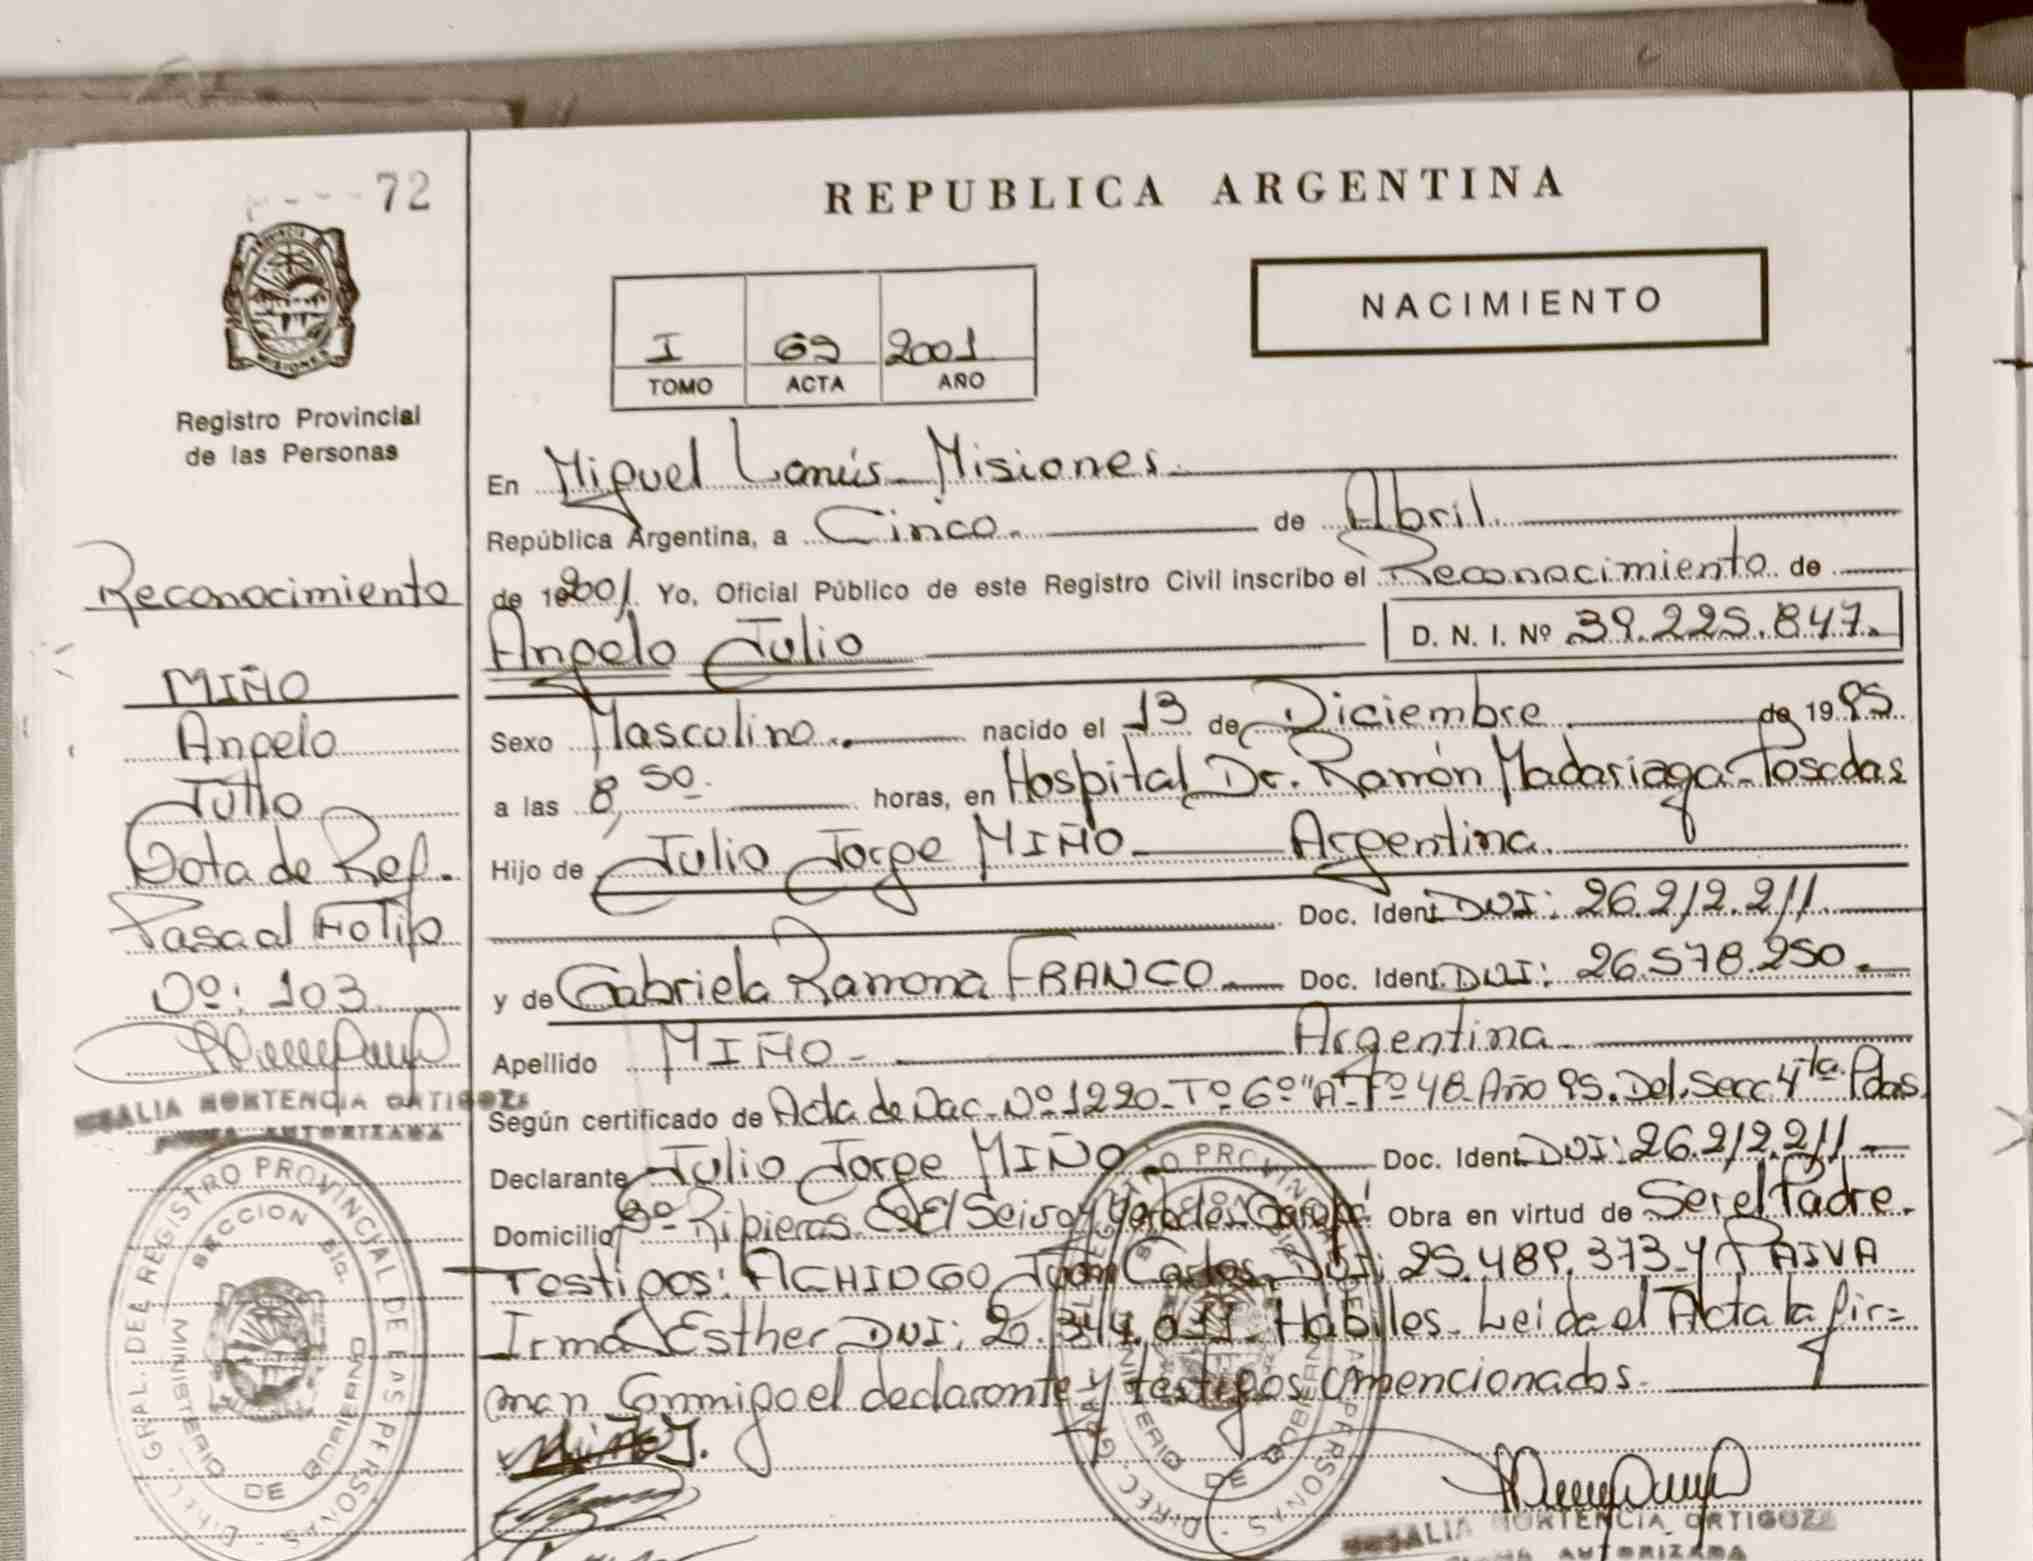 72
REPUBLICA ARGENTINA
NACIMIENTO
I 69 2001
TOMO ACTA AÑO
MISIONES
Registro Provincial
de las Personas
Reconocimiento
MIÑO
Angelo
Julio
Nota de Ref.
Pasa al Folio
Nº: 103
ROSALIA HORTENCIA ORTIGOZA
FIRMA AUTORIZADA
En Miguel Lanús - Misiones
República Argentina, a Cinco. de Abril.
de 2001. Yo, Oficial Público de este Registro Civil inscribo el Reconocimiento de
Angelo Julio D. N. I. Nº 39.225.847.
Sexo Masculino. nacido el 13 de Diciembre de 1995
a las 8,50 horas, en Hospital Dr. Ramón Madariaga - Posadas
Hijo de Julio Jorge MIÑO Argentina
Doc. Ident. DNI: 26.212.211
y de Gabriela Ramona FRANCO Doc. Ident. DNI: 26.578.250
Apellido MIÑO Argentina
Según certificado de Acta de Nac. Nº 1220 - Tº 6º "A" - Fº 48 - Año 95. Del. Secc 4ta. Pdas.
Declarante Julio Jorge MIÑO Doc. Ident. DNI: 26.212.211
Domicilio Bº Ribieras Obra en virtud de Ser el Padre.
Testigos: Juan Carlos DNI: 25.489.373 y PAIVA
Irma Esther DNI: 20.344.011 Habiles. Leida el Acta la fir=
man Conmigo el declarante y testigos mencionados.
Miño J.
DIREC. GRAL. DEL REGISTRO PROVINCIAL DE LAS PERSONAS
MINISTERIO DE GOBIERNO
ROSALIA HORTENCIA ORTIGOZA
FIRMA AUTORIZADA